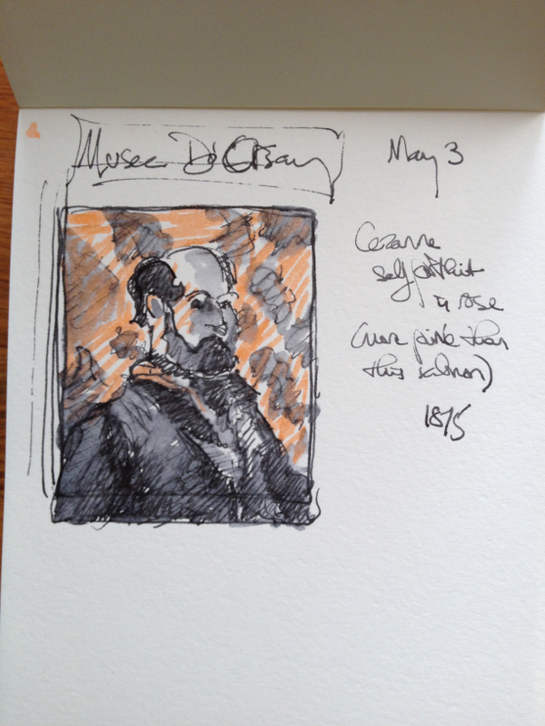 Musee D'Orsay
May 3
Cezanne
self portrait
à rose
(more pink than
this salmon)
1875